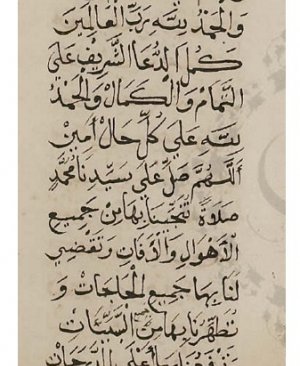 والحمد لله رب العالمين
كمل الدعا الشريف علي
التمام والكمال والحمد
لله علي كل حال امين
اللهم صل علي سيدنا محمد
صلاة تنجينا بها من جميع
الاهوال والافات وتقضي
لنا بها جميع الحاجات و
تطهرنا بها من جميع السيئات
وترفعنا بها اعلي الدرجات